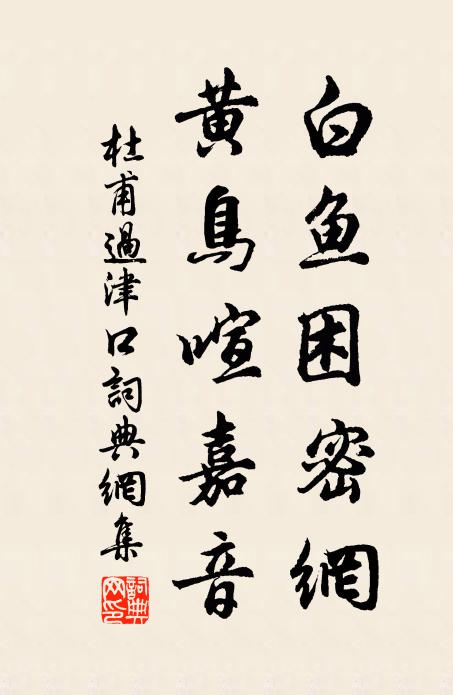 白鱼困密網
黄鳥喧嘉音
杜甫過津口詞典網集
詞典网印